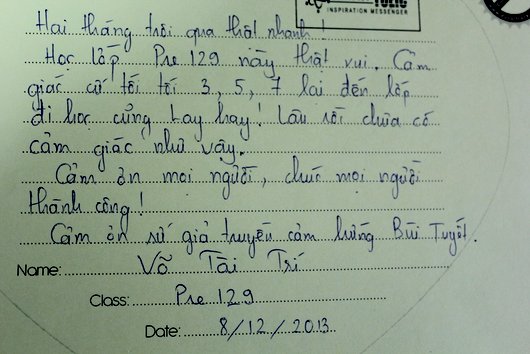 TOEIC
INSPIRATION MESSENGER
Hai tháng trôi qua thật nhanh!
Học lớp Pre 129 này thật vui. Cảm
giác cứ tối tối 3, 5, 7 lại đến lớp
đi học cũng hay hay! Lâu rồi chưa có
cảm giác như vậy.
Cảm ơn mọi người, chúc mọi người
thành công!
Cảm ơn sứ giả truyền cảm hứng Bùi Tuyết.
Name: Võ Tài Trí
Class: Pre 129
Date: 8/12/2013